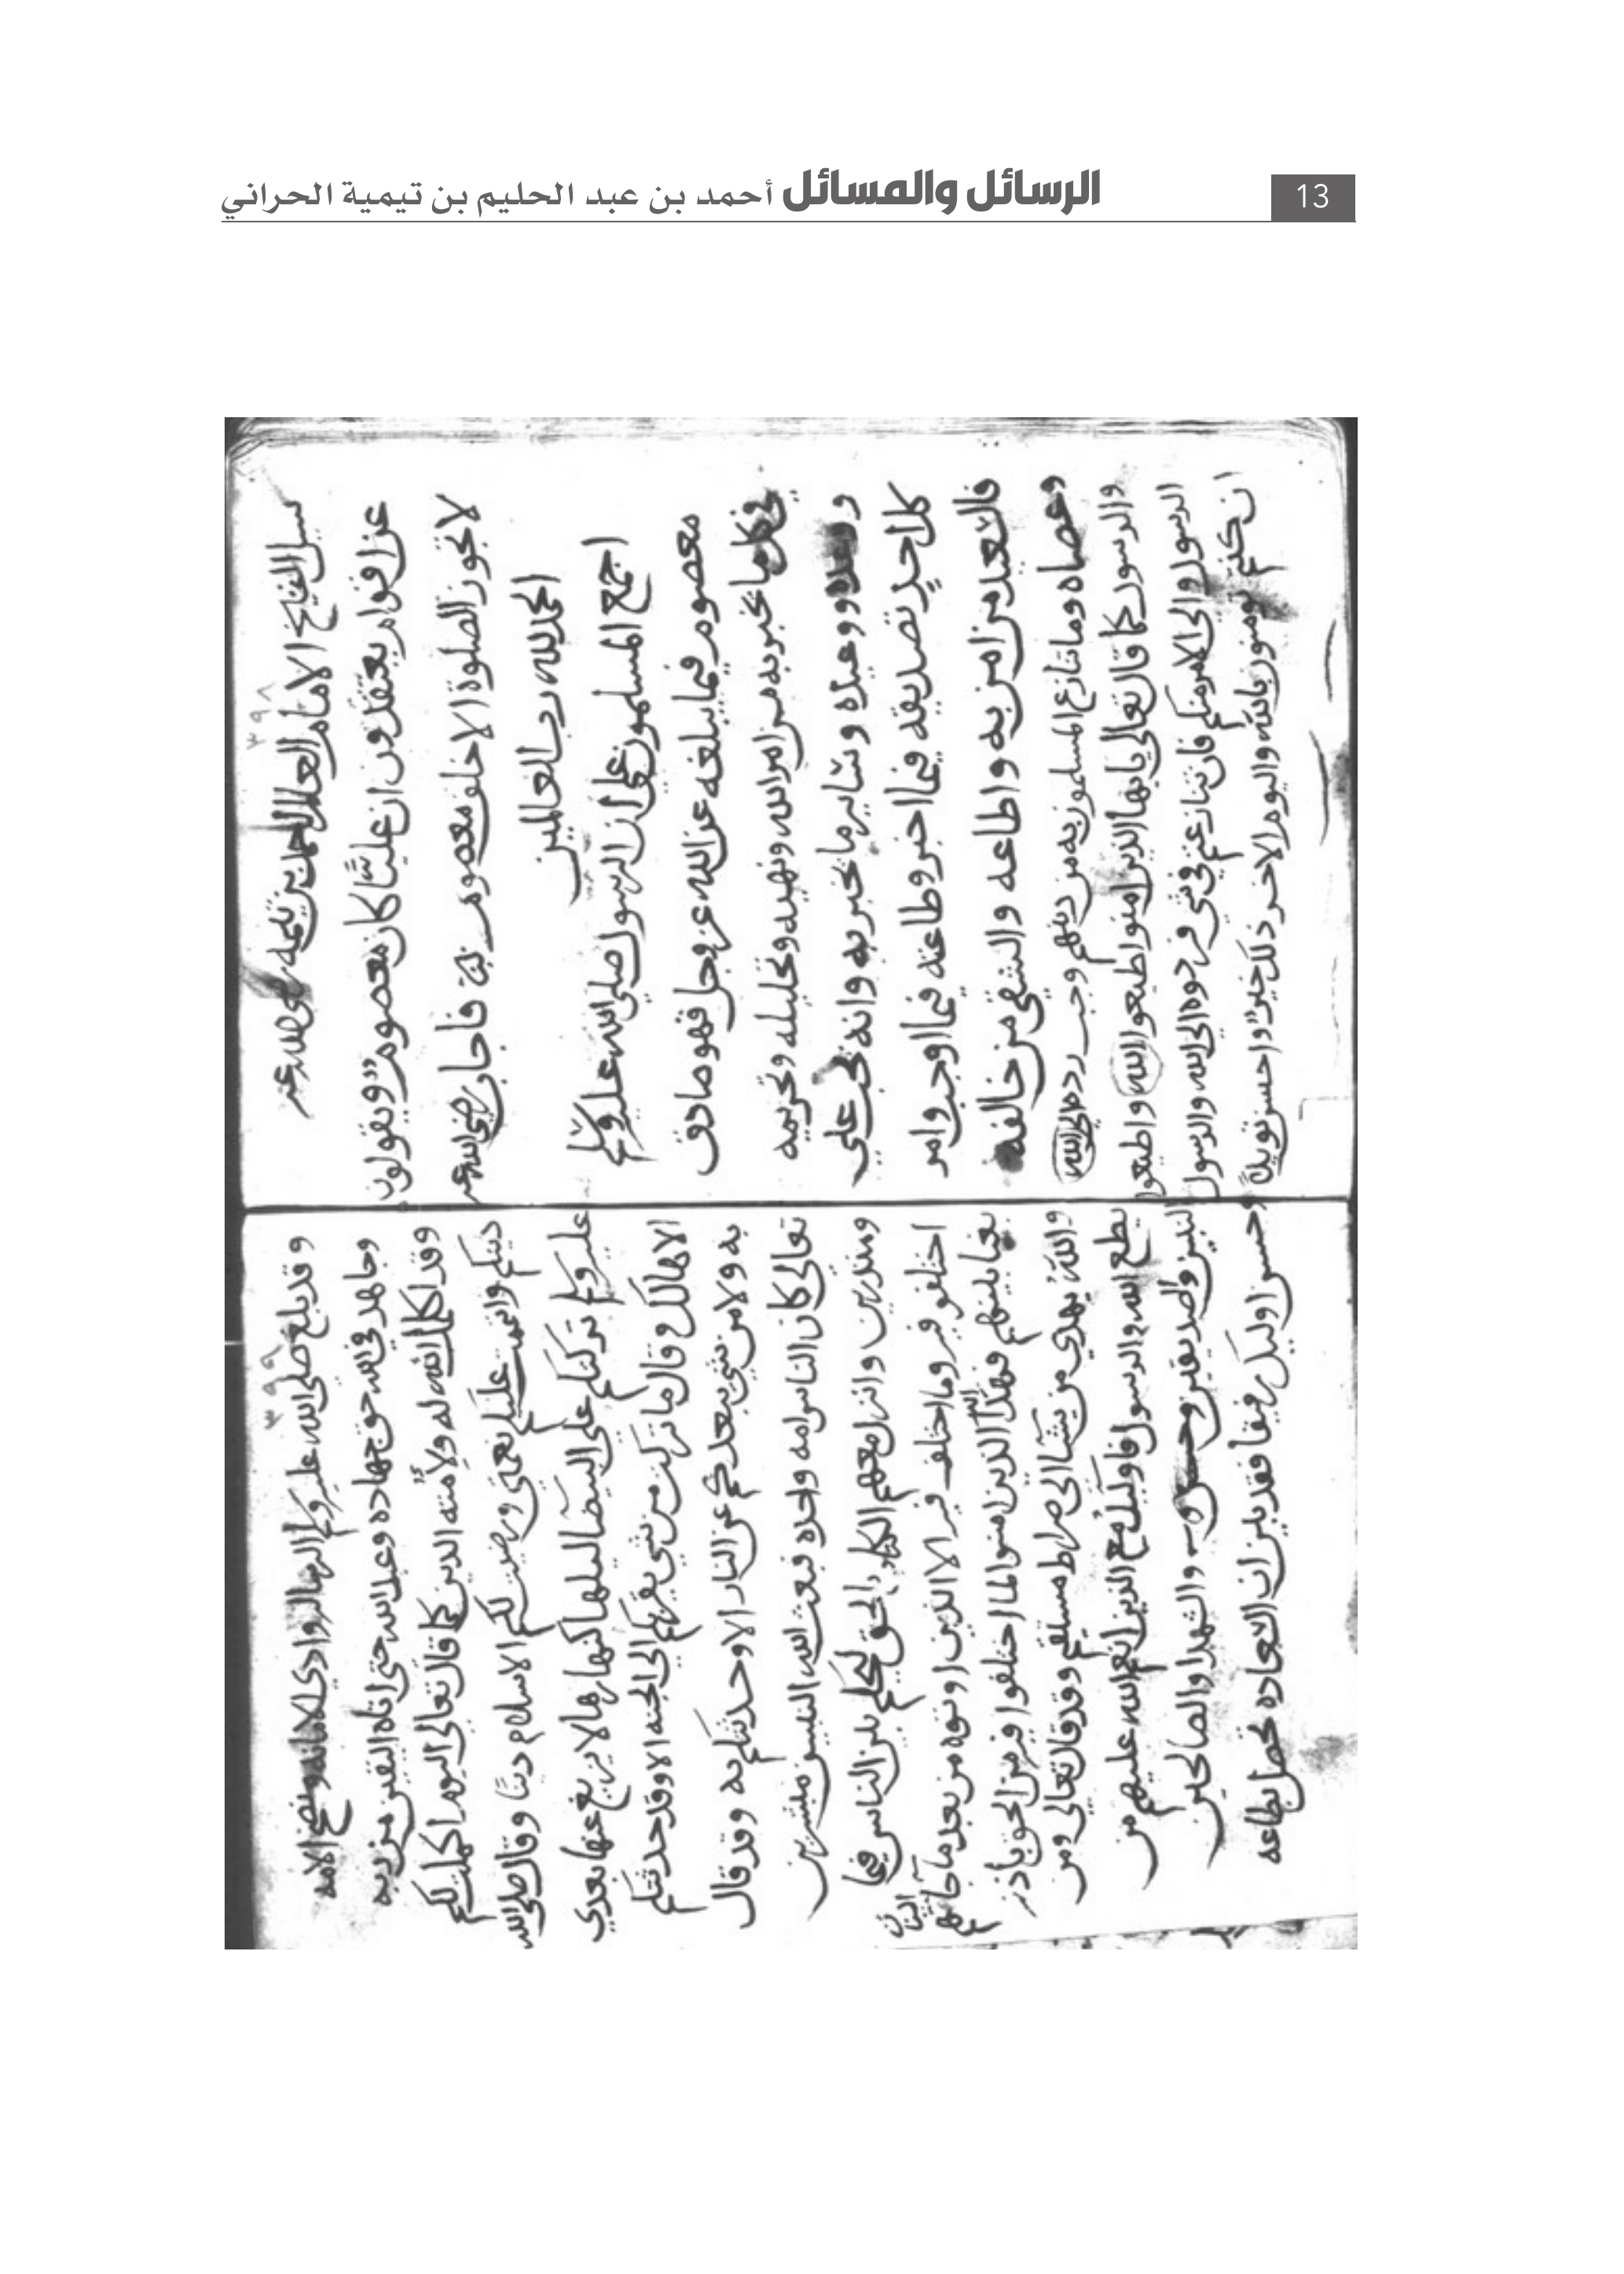 13
الرسائل والمسائل أحمد بن عبد الحليم بن تيمية الحراني
٣٩٨
سيل الشيخ الامام العلامه احمد بن تيميه رضي الله عنه
عن اقوام يعتقدون ان عليًّا كان معصوم ويقولون
لا تجوز الصلوة الا خلف معصوم فاجاب رضي الله عنه
الحمد لله رب العالمين
اجمع المسلمون على ان الرسول صلى الله عليه وسلم
معصوم فيما يبلغه عن الله عز وجل فهو صادق
في كل ما يخبر به من امر الله ونهيه وتحليله وتحريمه
ووعده ووعيده وساير ما يخبر به وانه يجب على
كل احدٍ تصديقه فيما اخبر وطاعته فيما اوجب وامر
فالسعيد من امن به واطاعه والشقي من خالفه
وعصاه وما تنازع المسلمون به من دينهم وجب رده الى الله
والرسول كما قال تعالى يا يها الذين امنوا اطيعوا الله واطيعوا
الرسول والى الامر منكم فان تنازعتم في شي فردوه الى الله والرسول
ان كنتم تومنون بالله واليوم الاخر ذلك خيرٌ واحسن تويلاً
٣٩٩
وقد بلغ صلى الله عليه وسلم الرساله وادي الامانه ونصح الامه
وجاهد في الله حق جهاده وعبد الله حتى اتاه اليقين من ربه
وقد اكمل الله له ولأمته الدين كما قال تعالى اليوم اكملت لكم
دينكم واتممت عليكم نعمتي ورضيت لكم الاسلام دينًا وقال صلى الله
عليه وسلم تركتكم على البيضا ليلها كنهارها لا يزيغ عنها بعدي
الا هالك وقال ما تركت من شي يقربكم الى الجنه الا وقد حدثتكم
به ولا من شي يبعدكم عن النار الا وحدثتكم به وقد قال
تعالى كان الناس امه واحده فبعث الله النبيين مبشرين
ومنذرين وانزل معهم الكتاب بالحق ليحكم بين الناس فيما
اختلفو فيه وما اختلف فيه الا الذين اوتوه من بعد ما جاتهم البينات
بغيا بينهم فهدا الله الذين امنوا لما اختلفوا فيه من الحق بأذنه
والله يهدي من يشا الى صراط مستقيم وقد قال تعالى ومن
يطع الله والرسول فاوليك مع الذين انعم الله عليهم من
النبيين والصديقين والشهدا والصالحين
وحسن اوليك رفيقا فقد بين ان السعاده تحصل بطاعه